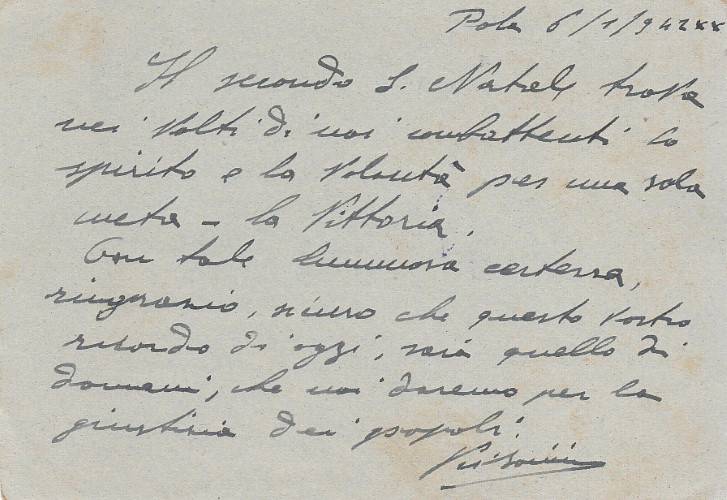 Pola 6/1/942xx
Il secondo S. Natale trova
nei volti di noi combattenti lo
spirito e la volontà per una sola
meta - la Vittoria.
Con tale luminosa certezza,
ringrazio, sicuro che questo vostro
ricordo di oggi, sarà quello di
domani, che noi daremo per la
giustizia dei popoli.